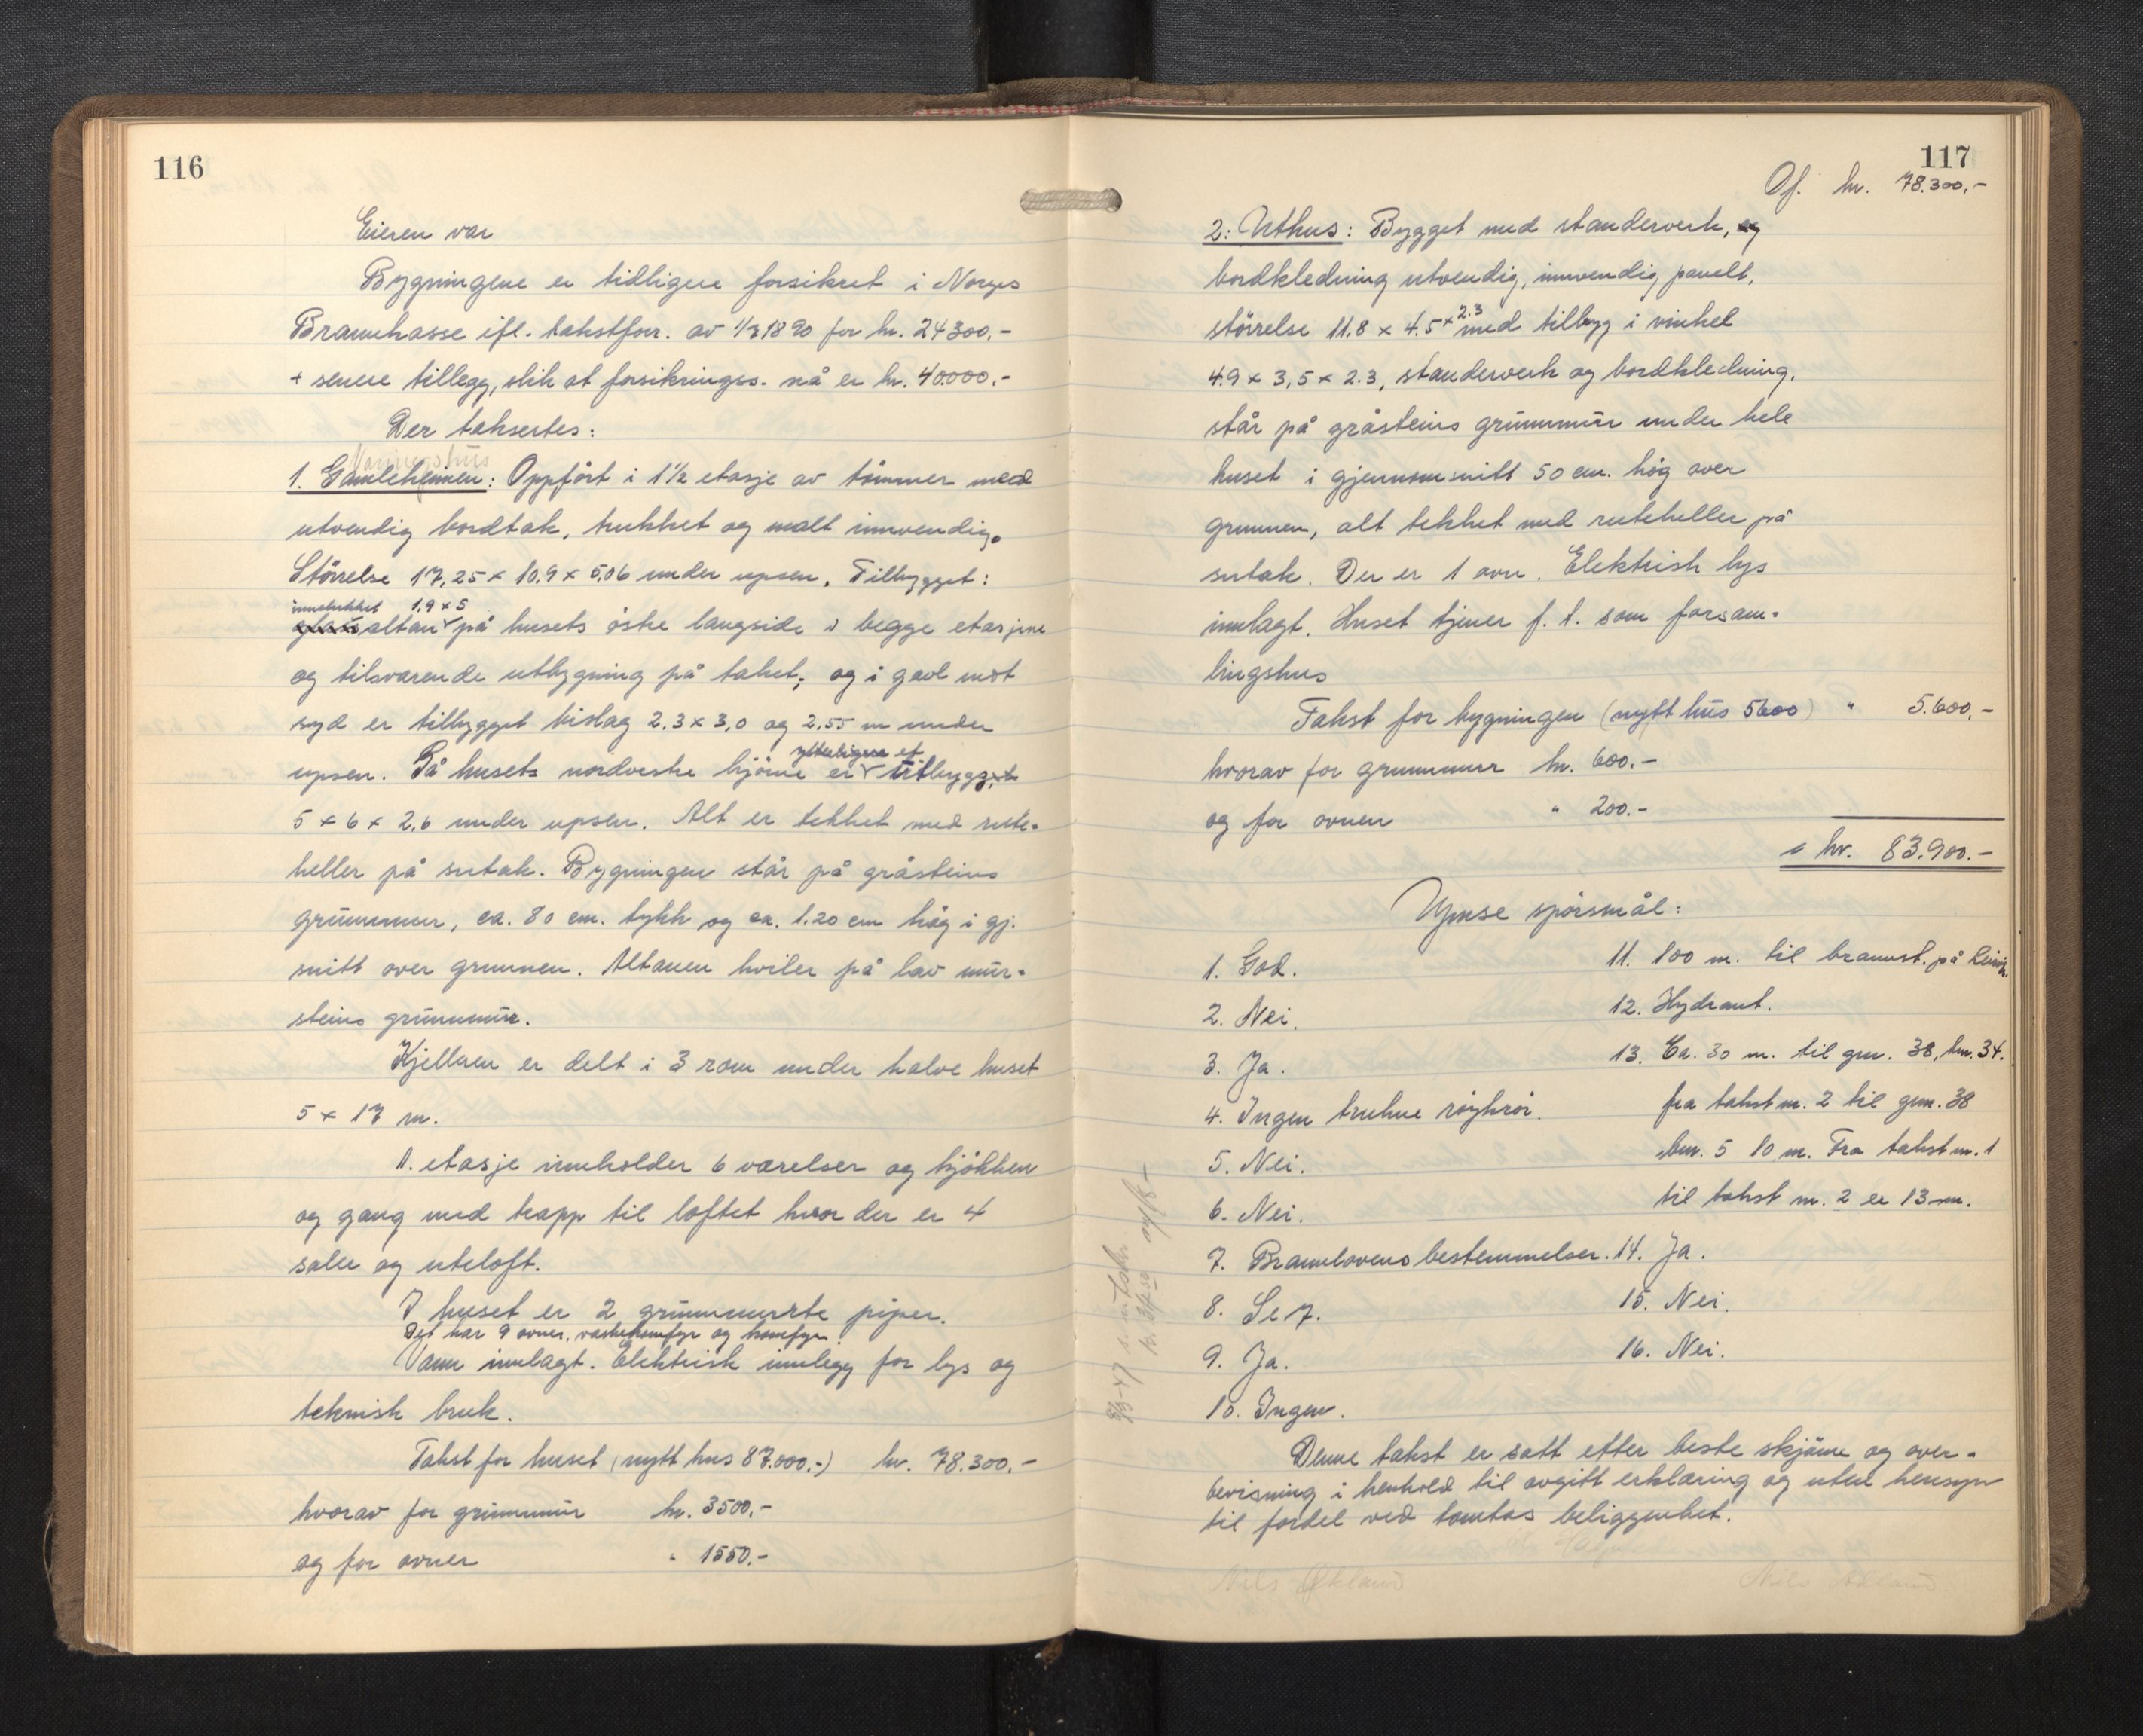 116
Eieren var
Bygningene er tidligere forsikret i Norges
Brannkasse ifl. takstforr. av 1/3 1890 for kr. 24300.-
+ senere tillegg, slik at forsikringss. nå er kr. 40.000.-
Der takseres:
Våningshus
1. Gamleheimen: Oppført i 1 1/2 etasje av tømmer med
utvendig bordtak, trukket og malt innvendig.
Størrelse 17,25 x 10.9 x 5,06 under upsen. Tilbygget:
innelukket 1,9 x 5
altan på husets østre langside i begge etasjene
og tilsvarende utbygning på taket; og i gavl mot
syd er tilbygget bislag 2.3 x 3,0 og 2.55 m under
ytterligere et
upsen. På husets nordvestre hjørne er tilbygg
5 x 6 x 2,6 under upsen. Alt er tekket med rute-
heller på sutak. Bygningen står på gråsteins
grunnmur, ca. 80 cm. tykk og ca. 1.20 cm høg i gj.
snitt over grunnen. Altanen hviler på lav mur-
steins grunnmur.
Kjelleren er delt i 3 rom under halve huset
5 x 17 m.
1. etasje inneholder 6 værelser og kjøkken
og gang med trapp til loftet hvor der er 4
saler og uteloft.
I huset er 2 grunnmurte piper.
Det har 9 ovner, vaskekomfyr og komfyr.
Vann innlagt. Elektrisk innlegg for lys og
teknisk bruk.
Takst for huset (nytt hus 87.000,-) kr. 78.300.-
hvorav for grunnmur kr. 3500,-
og for ovner " 1550.-
117
Of. kr. 78.300,-
2: Uthus: Bygget med standerverk, og
bordkledning utvendig, innvendig panelt,
størrelse 11,8 x 4.5 x 2.3 med tilbygg i vinkel
4.9 x 3,5 x 2.3, standerverk og bordkledning,
står på gråsteins grunnmur under hele
huset i gjennomsnitt 50 cm. høg over
grunnen, alt tekket med ruteheller på
sutak. Der er 1 ovn. Elektrisk lys
innlagt. Huset tjener f. t. som forsam-
lingshus
Takst for bygningen (nytt hus 5600) " 5.600,-
hvorav for grunnmur kr. 600.-
og for ovnen " 200.-
kr. 83.900.-
Ymse spørsmål:
1. God.
2. Nei.
3. Ja.
4. Ingen trukne røykrør.
5. Nei.
6. Nei.
7. Brannlovens bestemmelser.
8. Se 7.
9. Ja.
10. Ingen.
11. 100 m. til brannst. på
12. Hydrant.
13. Ca. 30 m. til gnr. 38, bnr. 34.
fra takst nr. 2 til gnr. 38
bnr. 5 10 m. Fra takst nr. 1
til takst nr. 2 er 13 m.
14. Ja.
15. Nei.
16. Nei.
Denne takst er satt etter beste skjønn og over-
bevisning i henhold til avgitt erklæring og uten hensyn
til fordel ved tomtas beliggenhet.
Nils Økland